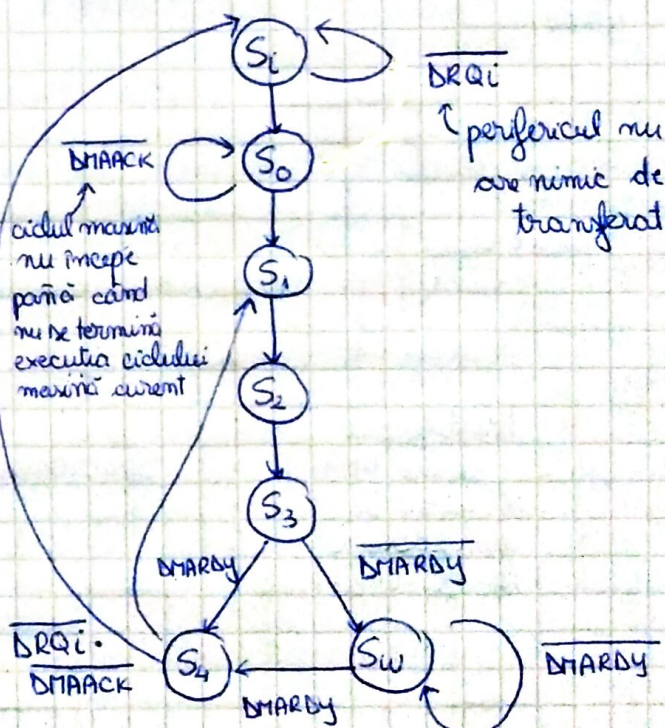 Si
DRQi
perifericul nu
are nimic de
transferat
DMAACK
S0
ciclul mașină
nu începe
până când
nu se termină
execuția ciclului
mașină curent
S1
S2
S3
DMARDY
DMARDY
DRQi ·
DMAACK
S4
SW
DMARDY
DMARDY